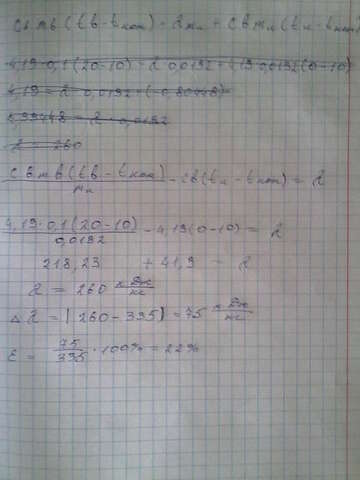 Cв mв (tв - tкон) = λ mл + Cв mл (tл - tкон)
4,19·0,1(20-10) = λ 0,0192 + 4,19·0,0192(0-10)
4,19 = λ · 0,0192 + (-0,80448)
4,99448 = λ · 0,0192
λ = 260
Cв mв (tв - tкон) / mл - Cв (tл - tкон) = λ
4,19·0,1(20-10) / 0,0192 - 4,19(0-10) = λ
218,23 + 41,9 = λ
λ = 260 кДж/кг
Δλ = |260 - 335| = 75 кДж/кг
ε = 75/335 · 100% = 22%